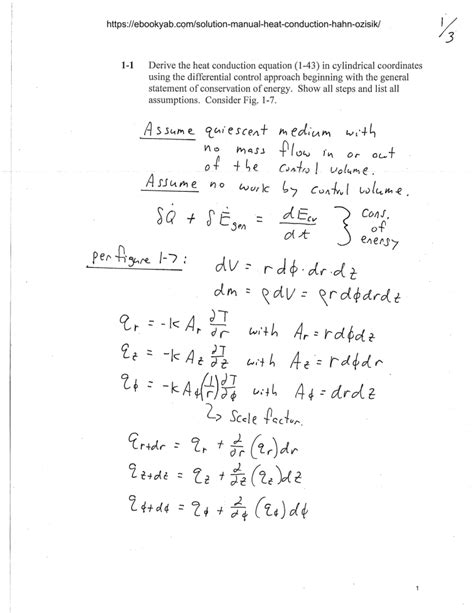 https://ebookyab.com/solution-manual-heat-conduction-hahn-ozisik/
1/3
1-1 Derive the heat conduction equation (1-43) in cylindrical coordinates
using the differential control approach beginning with the general
statement of conservation of energy. Show all steps and list all
assumptions. Consider Fig. 1-7.
Assume quiescent medium with
no mass flow in or out
of the control volume.
Assume no work by control volume.
δQ̇ + δĖgen = dEcv/dt } Cons. of energy
per figure 1-7: dV = r dϕ · dr · dz
dm = ρdV = ρrdϕdrdz
qr = -k Ar ∂T/∂r with Ar = rdϕdz
qz = -k Az ∂T/∂z with Az = rdϕdr
qϕ = -k Aϕ(1/r)∂T/∂ϕ with Aϕ = drdz
↳ Scale factor.
qr+dr = qr + ∂/∂r (qr)dr
qz+dz = qz + ∂/∂z (qz)dz
qϕ+dϕ = qϕ + ∂/∂ϕ (qϕ)dϕ
1